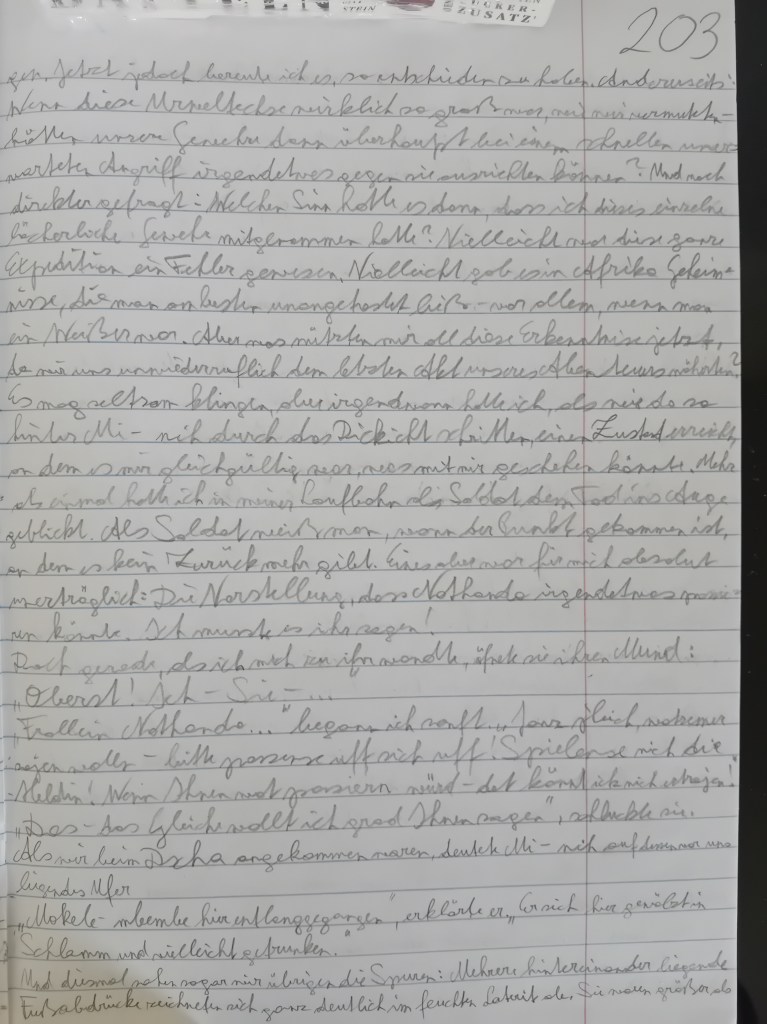 STEIN
ZUCKER-
ZUSATZ
203
gen. Jetzt jedoch bereute ich es, so entschieden zu haben. Andererseits:
Wenn diese Urweltechse wirklich so groß war, wie wir vermuteten –
hätten unsere Gewehre dann überhaupt bei einem schnellen uner-
warteten Angriff irgendetwas gegen sie ausrichten können? Und noch
direkter gefragt: Welchen Sinn hatte es dann, dass ich dieses einzelne
lächerliche Gewehr mitgenommen hatte? Vielleicht war diese ganze
Expedition ein Fehler gewesen. Vielleicht gab es in Afrika Geheim-
nisse, die man am besten unangetastet ließ – vor allem, wenn man
ein Weißer war. Aber was nützten mir all diese Erkenntnise jetzt,
da wir uns unwiederruflich dem letzten Akt unseres Abenteuers näherten?
Es mag seltsam klingen, aber irgendwann hatte ich, als wir da so
hinter Mi-nih durch das Dickicht schritten, einen Zustand erreicht,
an dem es mir gleichgültig war, was mit mir geschehen könnte. Mehr
als einmal hatte ich in meiner Laufbahn als Soldat dem Tod ins Auge
geblickt. Als Soldat weiß man, wann der Punkt gekommen ist,
an dem es kein Zurück mehr gibt. Eines aber war für mich absolut
unerträglich: Die Vorstellung, dass Nothando irgendetwas passie-
ren könnte. Ich musste es ihr sagen!
Doch gerade, als ich mich zu ihr wandte, öfnete sie ihren Mund:
„Oberst! Ich – Sie – ...
„Frollein Nothando..." begann ich sanft. „Janz gleich, wat immer
sajen wolln – bitte passense uff sich uff! Spielense nich die
Heldin! Wenn Ihnen wat passiern würd – det könnt ick nich ertrajen!"
„Das – das Gleiche wollt ich grad Ihnen sagen", schluckte sie.
Als wir beim Dscha angekommen waren, deutete Mi-nih auf dessen vor uns
liegendes Ufer
„Mokele-mbembe hier entlanggegangen", erklärte er. „Er sich hier gewälzt in
Schlamm und vielleicht getrunken."
Und diesmal sahen sogar wir übrigen die Spuren: Mehrere hintereinander liegende
Fußabdrücke zeichneten sich ganz deutlich im feuchten Laterit ab. Sie waren größer, als